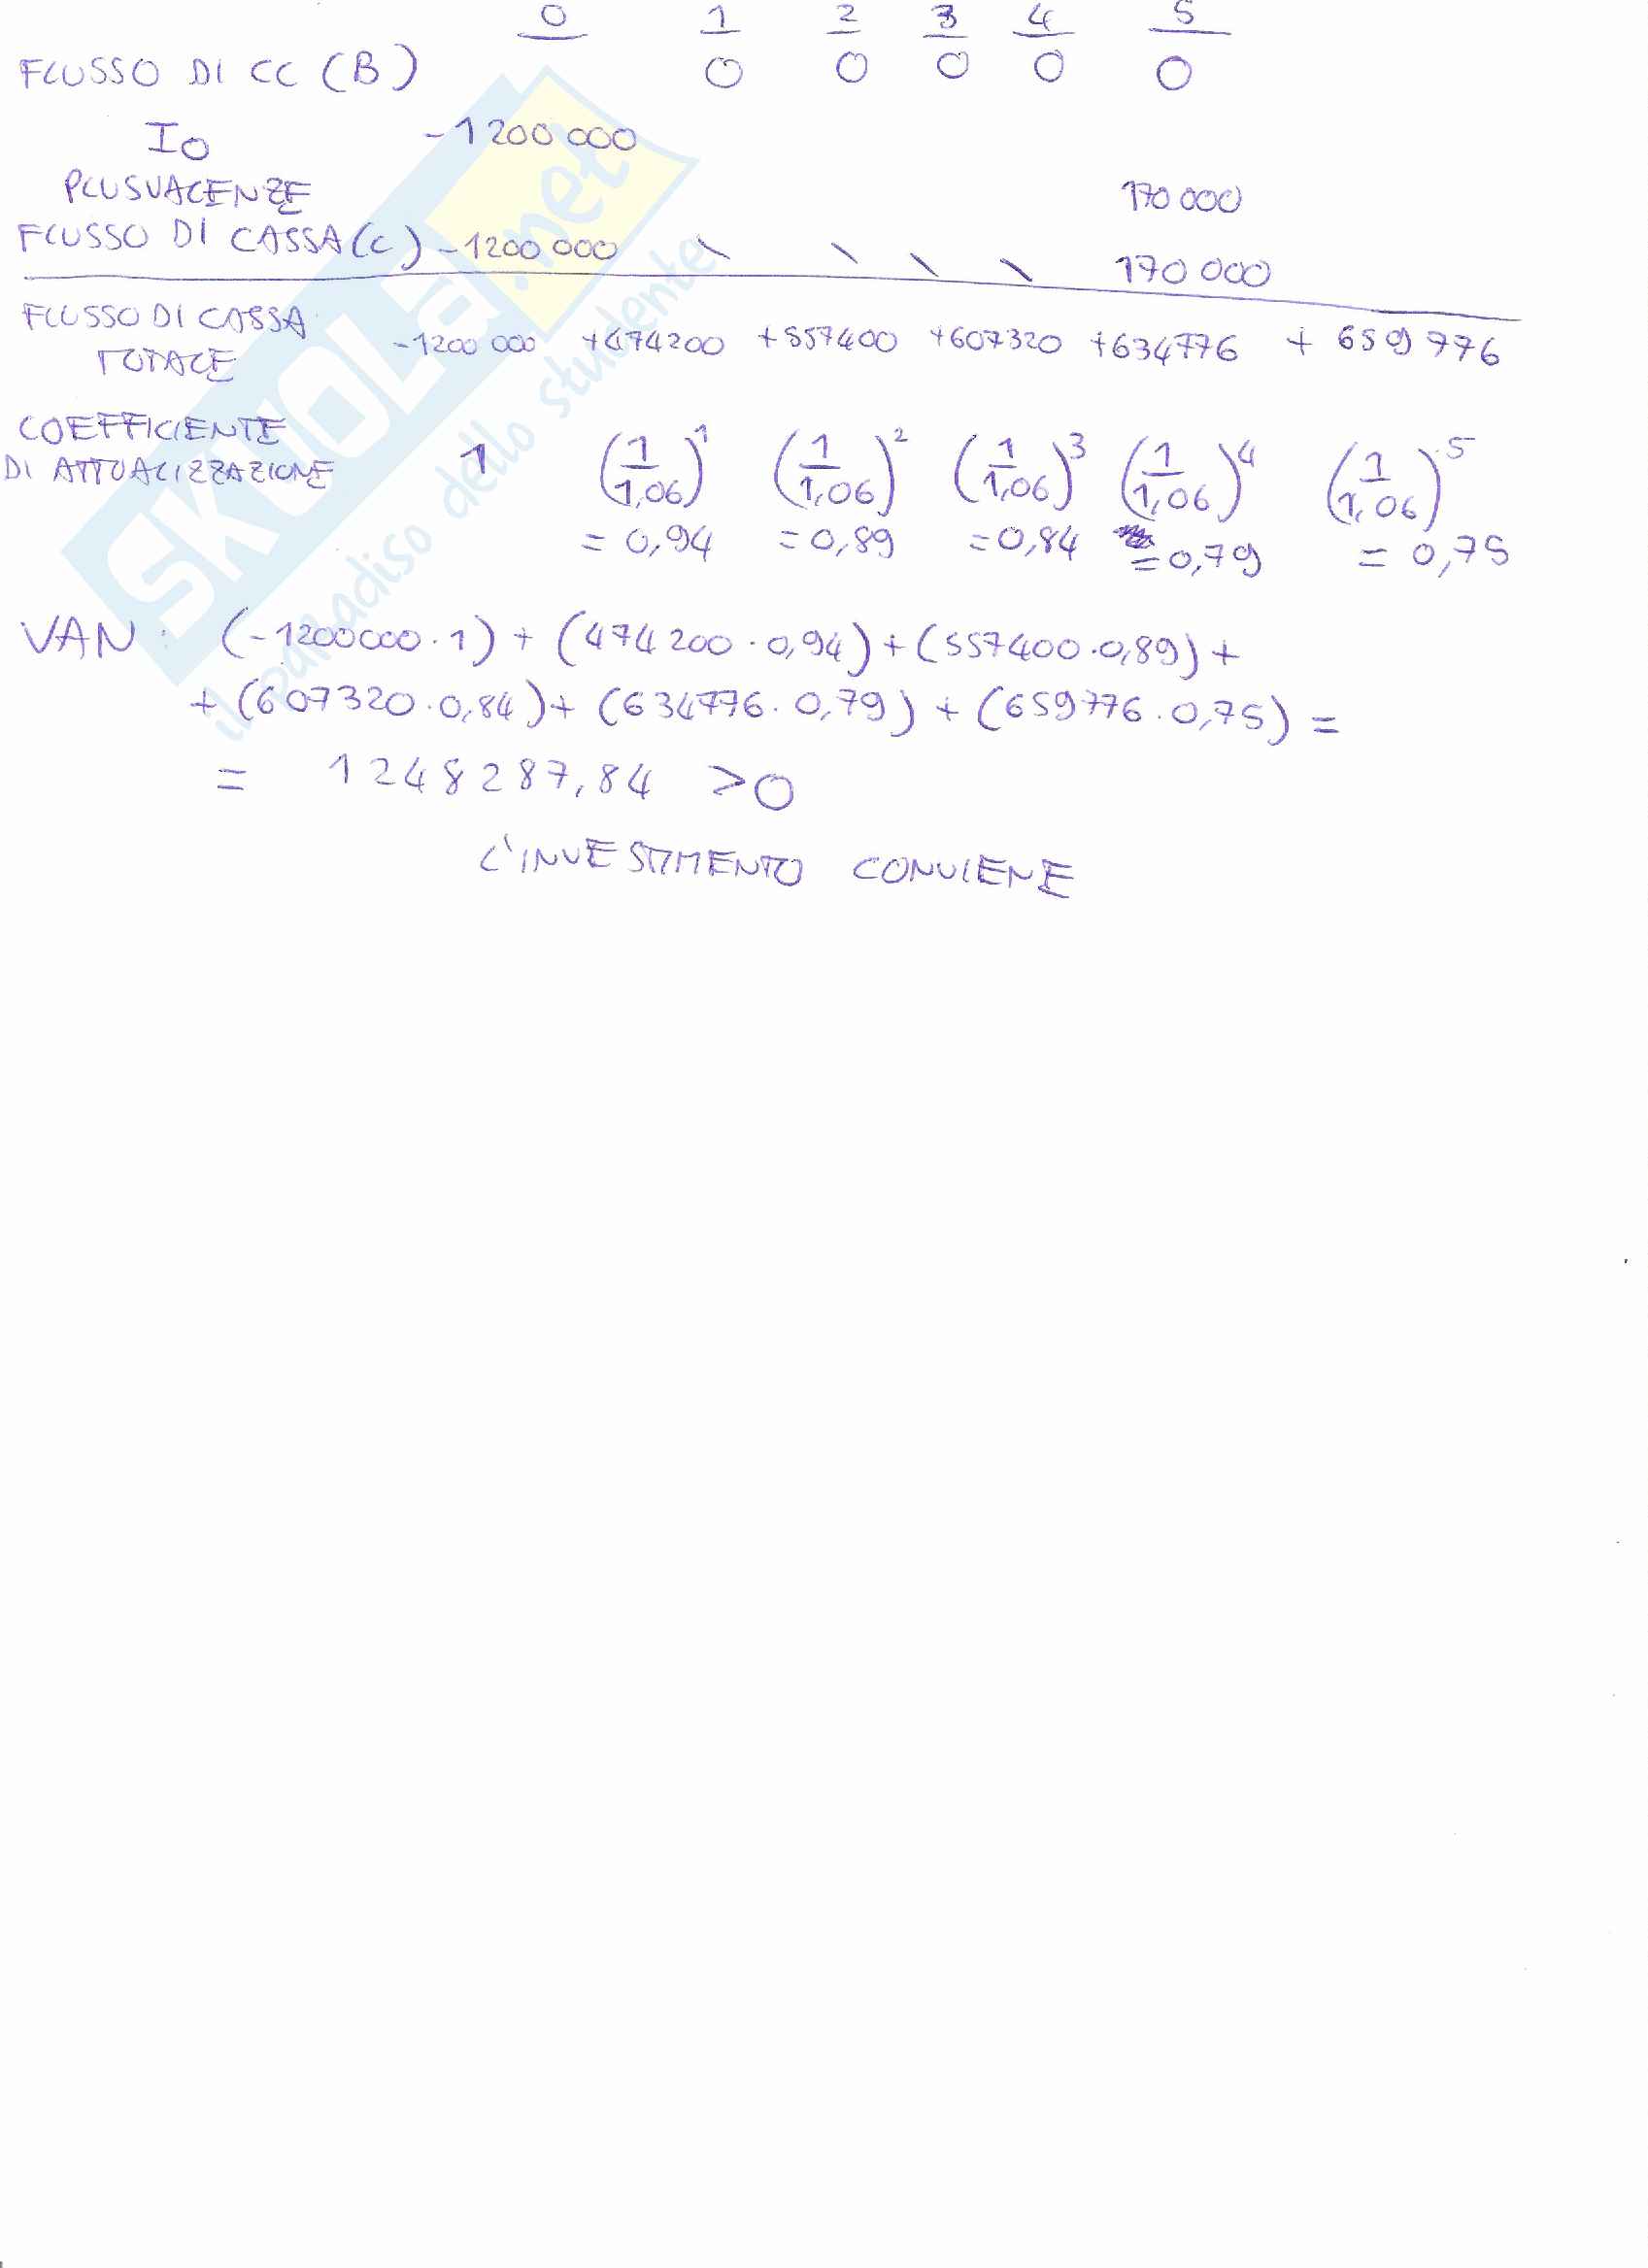 0 1 2 3 4 5
FLUSSO DI CC (B) 0 0 0 0 0
I0 -1200 000
PLUSVALENZE 170 000
FLUSSO DI CASSA (C) -1200 000 \ \ \ \ 170 000
FLUSSO DI CASSA TOTALE -1200 000 +474200 +557400 +607320 +634776 + 659 776
COEFFICIENTE
DI ATTUALIZZAZIONE 1 (1/1,06)^1 (1/1,06)^2 (1/1,06)^3 (1/1,06)^4 (1/1,06)^5
= 0,94 = 0,89 = 0,84 = 0,79 = 0,75
VAN: (-1200000 · 1) + (474 200 · 0,94) + (557400 · 0,89) +
+ (607320 · 0,84) + (634776 · 0,79) + (659776 · 0,75) =
= 1248287,84 >0
L'INVESTIMENTO CONVIENE
SKUOLA.net
il paradiso dello studente